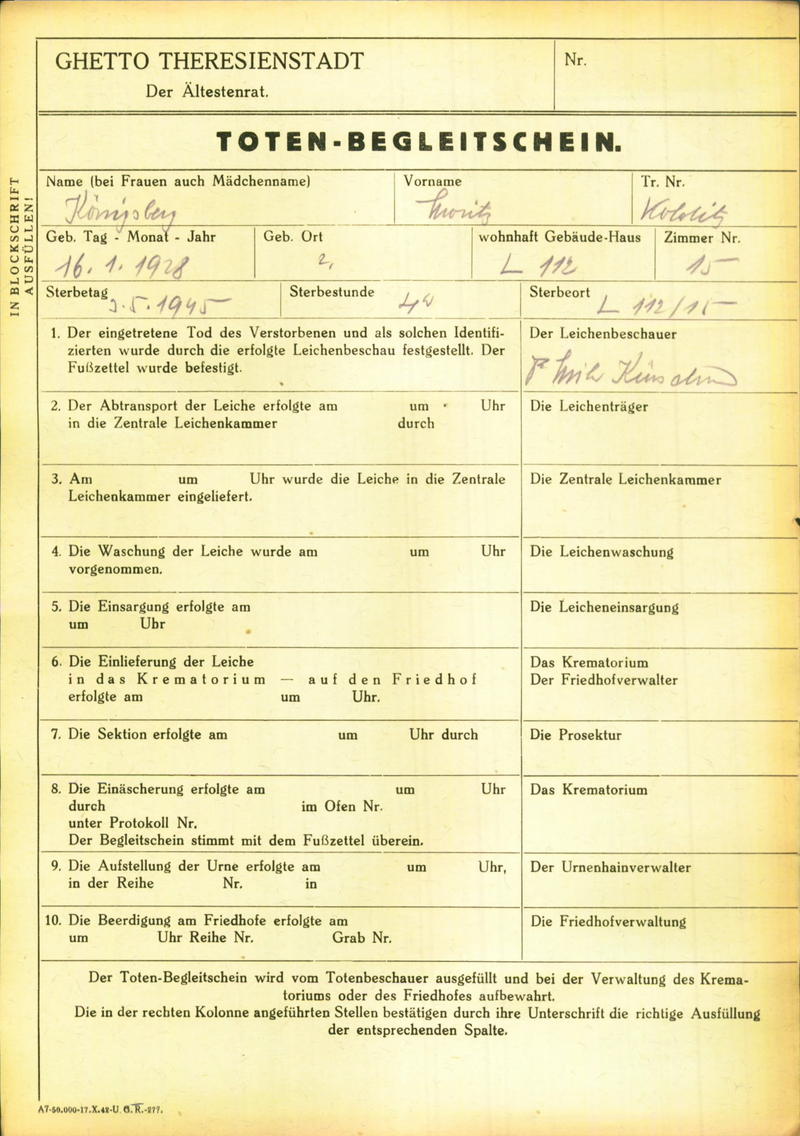 GHETTO THERESIENSTADT
Der Ältestenrat.
Nr.
TOTEN-BEGLEITSCHEIN.
IN BLOCKSCHRIFT AUSFÜLLEN!
Name (bei Frauen auch Mädchenname)
Königsberg
Vorname
Moritz
Tr. Nr.
Geb. Tag - Monat - Jahr
16. 1. 1928
Geb. Ort
wohnhaft Gebäude-Haus
L 112
Zimmer Nr.
15
Sterbetag
3.5.1945
Sterbestunde
4
Sterbeort
L 112/15
1. Der eingetretene Tod des Verstorbenen und als solchen Identifi-
zierten wurde durch die erfolgte Leichenbeschau festgestellt. Der
Fußzettel wurde befestigt.
Der Leichenbeschauer
2. Der Abtransport der Leiche erfolgte am um Uhr
in die Zentrale Leichenkammer durch
Die Leichenträger
3. Am um Uhr wurde die Leiche in die Zentrale
Leichenkammer eingeliefert.
Die Zentrale Leichenkammer
4. Die Waschung der Leiche wurde am um Uhr
vorgenommen.
Die Leichenwaschung
5. Die Einsargung erfolgte am
um Uhr
Die Leicheneinsargung
6. Die Einlieferung der Leiche
in das Krematorium — auf den Friedhof
erfolgte am um Uhr.
Das Krematorium
Der Friedhofverwalter
7. Die Sektion erfolgte am um Uhr durch
Die Prosektur
8. Die Einäscherung erfolgte am um Uhr
durch im Ofen Nr.
unter Protokoll Nr.
Der Begleitschein stimmt mit dem Fußzettel überein.
Das Krematorium
9. Die Aufstellung der Urne erfolgte am um Uhr,
in der Reihe Nr. in
Der Urnenhainverwalter
10. Die Beerdigung am Friedhofe erfolgte am
um Uhr Reihe Nr. Grab Nr.
Die Friedhofverwaltung
Der Toten-Begleitschein wird vom Totenbeschauer ausgefüllt und bei der Verwaltung des Krema-
toriums oder des Friedhofes aufbewahrt.
Die in der rechten Kolonne angeführten Stellen bestätigen durch ihre Unterschrift die richtige Ausfüllung
der entsprechenden Spalte.
A7-50.000-17.X.42-U. G.R.-277.